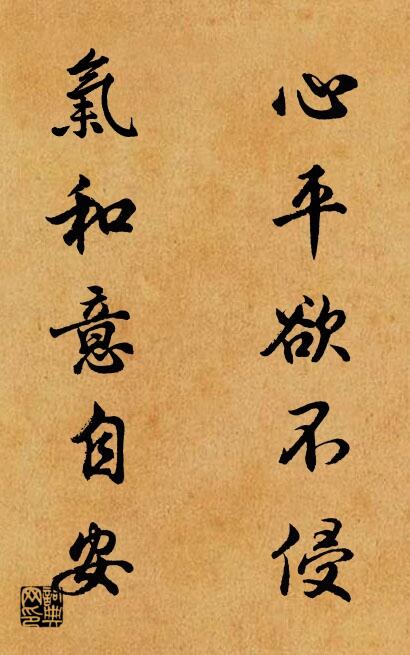 心平欲不侵
氣和意自安